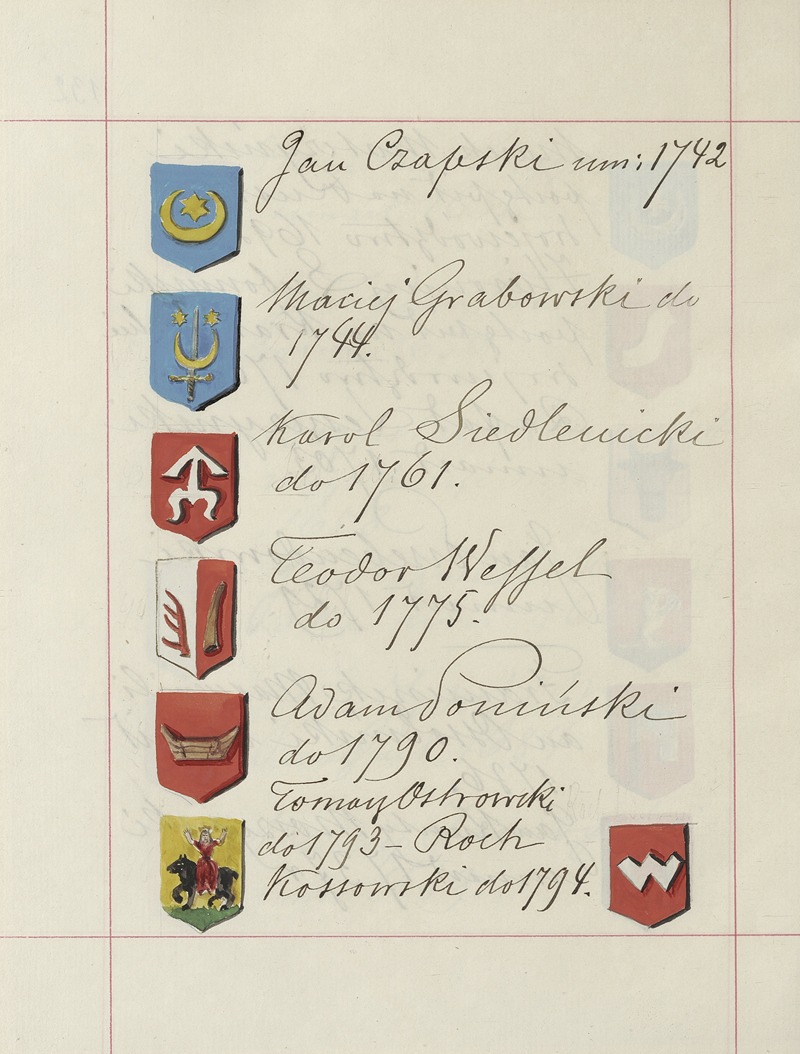 Jan Czapski um: 1742
Maciej Grabowski do
1744.
Karol Siedlenicki
do 1761.
Teodor Wessel
do 1775.
Adam Poniński
do 1790.
Tomasz Ostrowski
do 1793 - Roch
Kossowski do 1794.